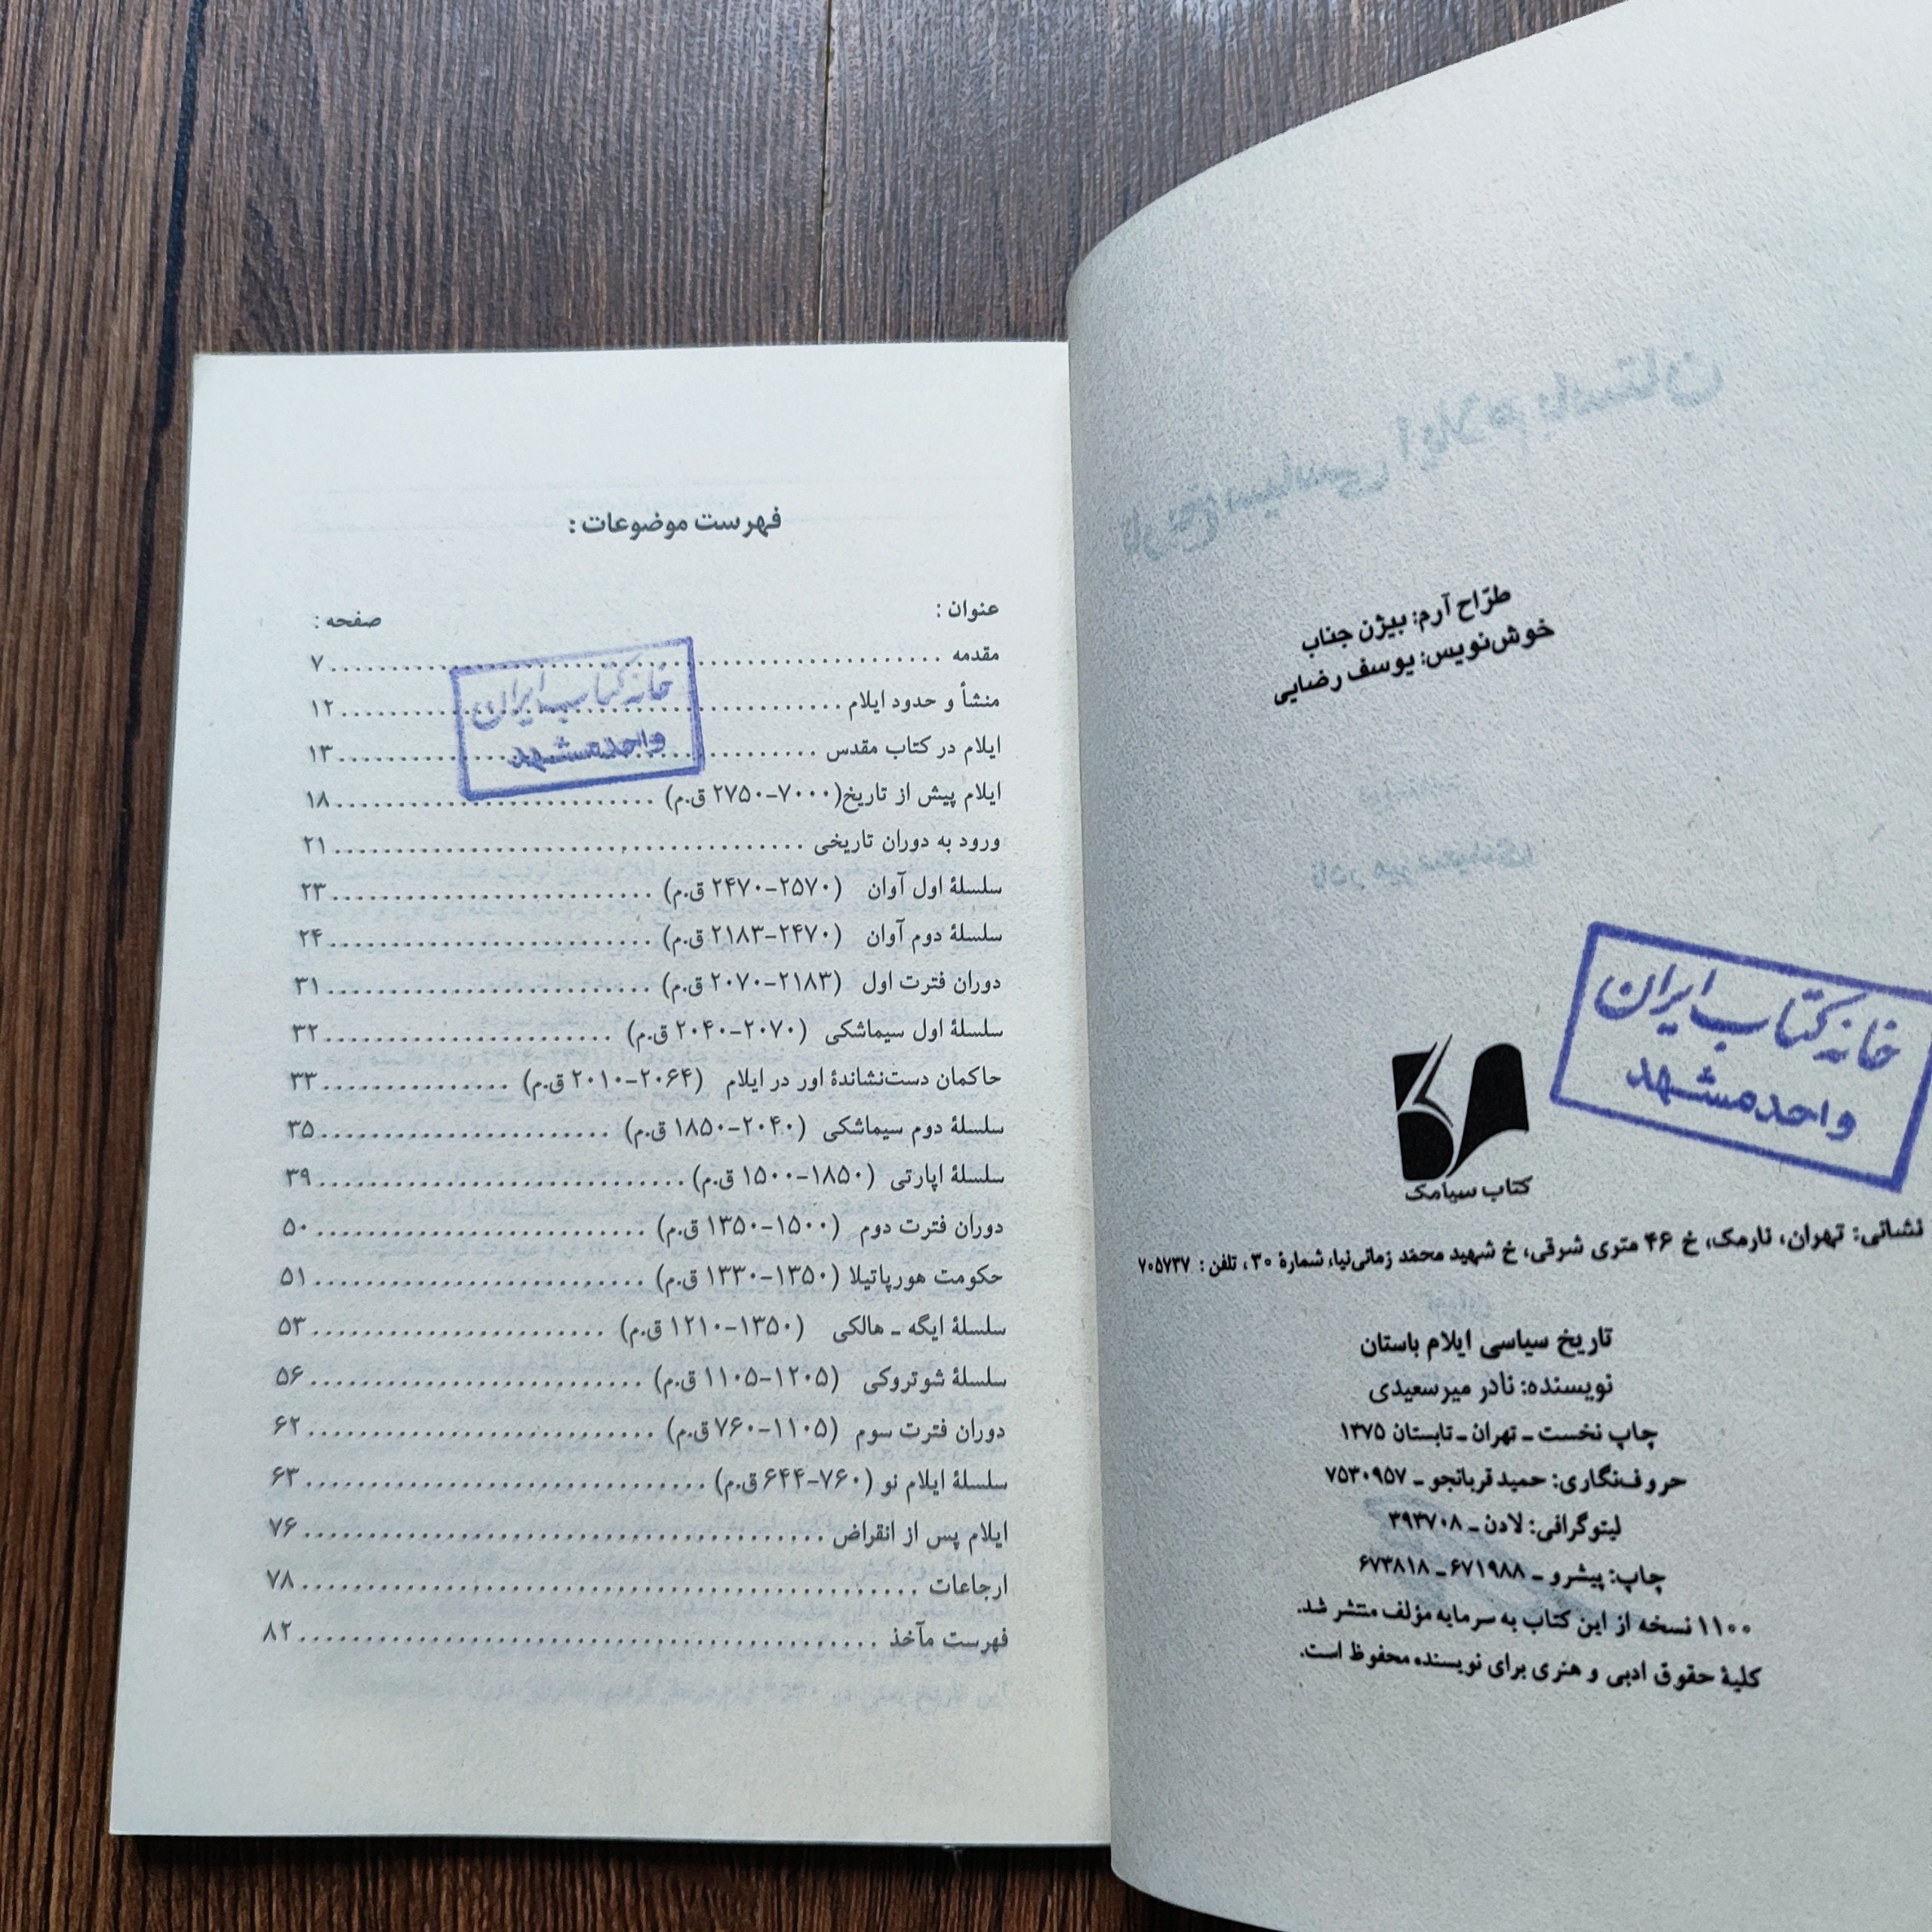 طرّاح آرم: بیژن جناب
خوش‌نویس: یوسف رضایی
خانه کتاب ایران
واحد مشهد
کتاب سیامک
نشانی: تهران، نارمک، خ ۴۶ متری شرقی، خ شهید محمّد زمانی‌نیا، شمارهٔ ۳۰، تلفن : ۷۰۵۷۳۷
تاریخ سیاسی ایلام باستان
نویسنده: نادر میرسعیدی
چاپ نخست ـ تهران ـ تابستان ۱۳۷۵
حروف‌نگاری: حمید قربانجو ـ ۷۵۳۰۹۵۷
لیتوگرافی: لادن ـ ۳۹۳۷۰۸
چاپ: پیشرو ـ ۶۷۱۹۸۸ ـ ۶۷۳۸۱۸
۱۱۰۰ نسخه از این کتاب به سرمایه مؤلف منتشر شد.
کلیهٔ حقوق ادبی و هنری برای نویسنده محفوظ است.
فهرست موضوعات :
عنوان : صفحه :
مقدمه ........ ۷
منشأ و حدود ایلام ........ ۱۲
ایلام در کتاب مقدس ........ ۱۳
خانه کتاب ایران
واحد مشهد
ایلام پیش از تاریخ(۷۰۰۰-۲۷۵۰ ق.م) ........ ۱۸
ورود به دوران تاریخی ........ ۲۱
سلسلهٔ اول آوان (۲۵۷۰-۲۴۷۰ ق.م) ........ ۲۳
سلسلهٔ دوم آوان (۲۴۷۰-۲۱۸۳ ق.م) ........ ۲۴
دوران فترت اول (۲۱۸۳-۲۰۷۰ ق.م) ........ ۳۱
سلسلهٔ اول سیماشکی (۲۰۷۰-۲۰۴۰ ق.م) ........ ۳۲
حاکمان دست‌نشاندهٔ اور در ایلام (۲۰۶۴-۲۰۱۰ ق.م) ........ ۳۳
سلسلهٔ دوم سیماشکی (۲۰۴۰-۱۸۵۰ ق.م) ........ ۳۵
سلسلهٔ اپارتی (۱۸۵۰-۱۵۰۰ ق.م) ........ ۳۹
دوران فترت دوم (۱۵۰۰-۱۳۵۰ ق.م) ........ ۵۰
حکومت هورپاتیلا (۱۳۵۰-۱۳۳۰ ق.م) ........ ۵۱
سلسلهٔ ایگه ـ هالکی (۱۳۵۰-۱۲۱۰ ق.م) ........ ۵۳
سلسلهٔ شوتروکی (۱۲۰۵-۱۱۰۵ ق.م) ........ ۵۶
دوران فترت سوم (۱۱۰۵-۷۶۰ ق.م) ........ ۶۲
سلسلهٔ ایلام نو (۷۶۰-۶۴۴ ق.م) ........ ۶۳
ایلام پس از انقراض ........ ۷۶
ارجاعات ........ ۷۸
فهرست مآخذ ........ ۸۲